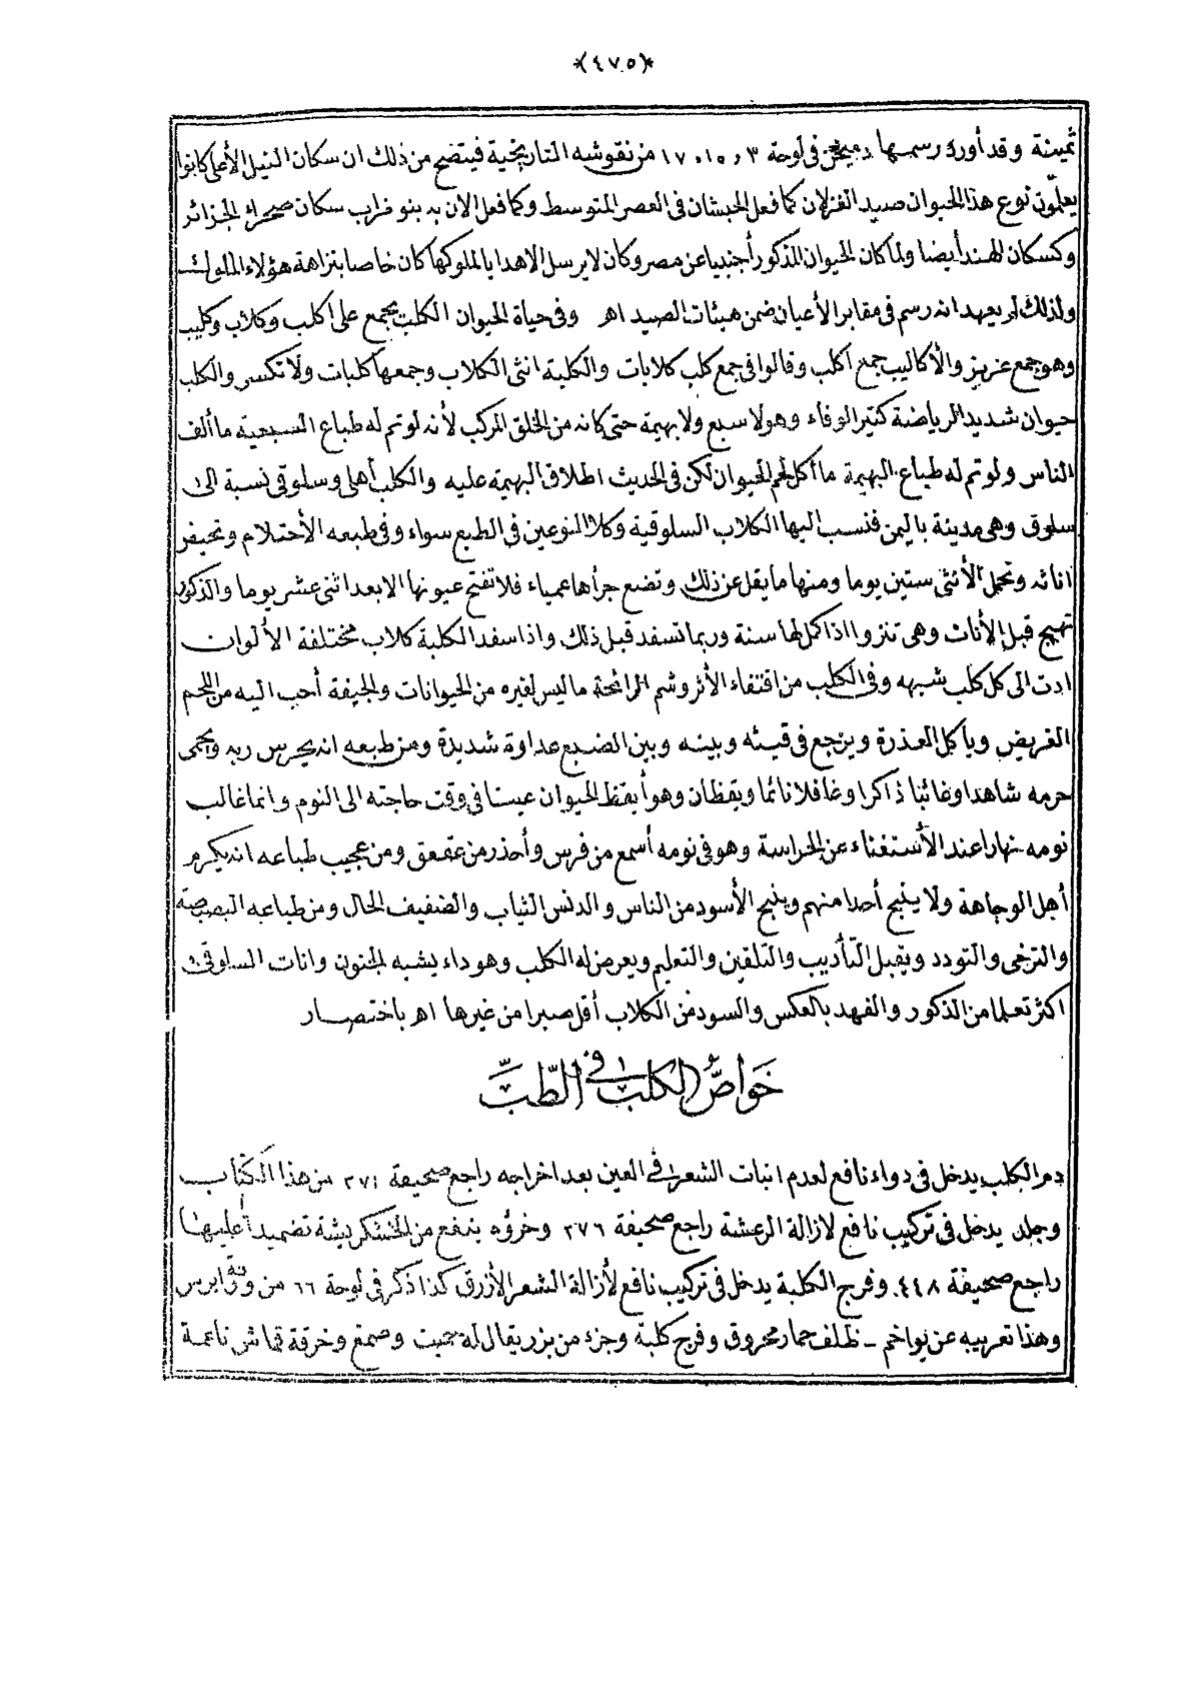 *(٤٧٥)*
ثمينة وقد أورد رسمها دميخن فى لوحة ٣ و ١٥ و ١٧ من نقوشه التاريخية فيتضح من ذلك ان سكان النيل الأعلى كانوا
يعلّمون نوع هذا الحيوان صيد الغزلان كما فعل الحبشان فى العصر المتوسط وكما فعل الان به بنو فراب سكان صحراء الجزائر
وكسكان الهند أيضا ولما كان الحيوان المذكور أجنبيا عن مصر وكان لا يرسل الا هدايا لملوكها كان خاصا بنزاهة هؤلاء الملوك
ولذلك لم يعهد انه رسم فى مقابر الأعيان ضمن هيئات الصيد اهـ وفى حياة الحيوان الكلب يجمع على أكلب وكلاب وكليب
وهو جمع عزيز والأكاليب جمع أكلب وقالوا فى جمع كلب كلابات والكلبة انثى الكلاب وجمعها كلبات ولا تكسر والكلب
حيوان شديد الرياضة كثير الوفاء وهو لا سبع ولا بهيمة حتى كانه من الخلق المركب لأنه لو تم له طباع السبعية ما ألف
الناس ولو تم له طباع البهيمة ما أكل لحم الحيوان لكن فى الحديث اطلاق البهيمة عليه والكلب أهلى وسلوقى نسبة الى
سلوق وهى مدينة باليمن فنسب اليها الكلاب السلوقية وكلا النوعين فى الطبع سواء وفى طبعه الأحتلام وتحيض
اناثه وتحمل الأنثى ستين يوما ومنها ما يقل عن ذلك وتضع جرأها عمياء فلا تفتح عيونها الا بعد اثنى عشر يوما والذكور
تهيج قبل الأناث وهى تنزوا اذا كمل لها سنة وربما تسفد قبل ذلك واذا سفد الكلبة كلاب مختلفة الألوان
ادت الى كل كلب شبهه وفى الكلب من اقتفاء الأثر وشم الرائحة ما ليس لغيره من الحيوانات والجيفة أحب اليه من اللحم
الغريض ويأكل العذرة ويرجع فى قيئه وبينه وبين الضبع عداوة شديدة ومن طبعه انه يحرس ربه ويحمى
حرمه شاهدا وغائبا ذاكرا وغافلا نائما ويقظان وهو أيقظ الحيوان عينا فى وقت حاجته الى النوم وانما غالب
نومه نهارا عند الأستغناء عن الحراسة وهو فى نومه أسمع من فرس وأحذر من عقعق ومن عجيب طباعه انه يكرم
أهل الوجاهة ولا ينبح أحدا منهم وينبح الأسود من الناس والدنس الثياب والضعيف الحال ومن طباعه البصبصة
والترضى والتودد ويقبل التأديب والتلقين والتعليم ويعرض له الكلب وهو داء يشبه الجنون واناث السلوقى
اكثر تعلما من الذكور والفهد بالعكس والسود من الكلاب أقل صبرا من غيرها اهـ باختصار
خَواصُّ الكلب فى الطّبِّ
دم الكلب يدخل فى دواء نافع لعدم انبات الشعر فى العين بعد اخراجه راجع صحيفة ٢٧١ من هذا الكتاب
وجلد يدخل فى تركيب نافع لازالة الرعشة راجع صحيفة ٢٧٦ وخرؤه ينفع من الخشكريشة تضميدا عليها
راجع صحيفة ٤٤٨. وفرج الكلبة يدخل فى تركيب نافع لأزالة الشعر الأزرق كذا ذكر فى لوحة ٦٦ من ورق ابرس
وهذا تعريبه عن يواخم ـ ظلف حمار محروق وفرج كلبة وجزء من بزر يقال له حبت وصمغ وخرقة قماش ناعمة